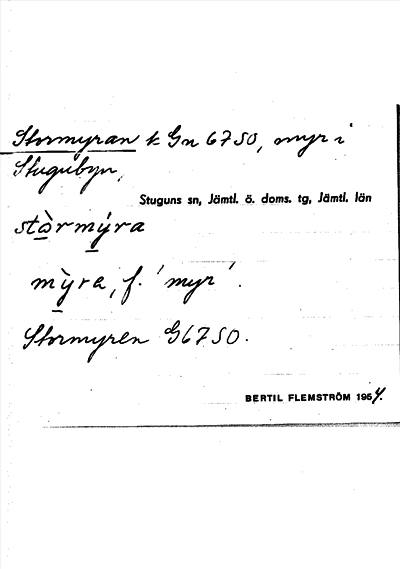 Stormyran k Gn 67 SO, myr i
Stugubyn,
Stuguns sn, Jämtl. ö. doms. tg, Jämtl. län
stò̲rmý̲ra
mỳ̲ra, f. 'myr'.
Stormyren G67SO.
BERTIL FLEMSTRÖM 1954.